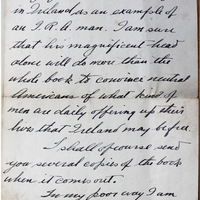 in Ireland, as an example of
an I.R.A. man. I am sure
that his magnificent head
alone will do more than the
whole book to convince neutral
Americans of what kind of
men are daily offering up their
lives that Ireland may be free.
I shall of course send
you several copies of the book
when it comes out.
In my poor way I am